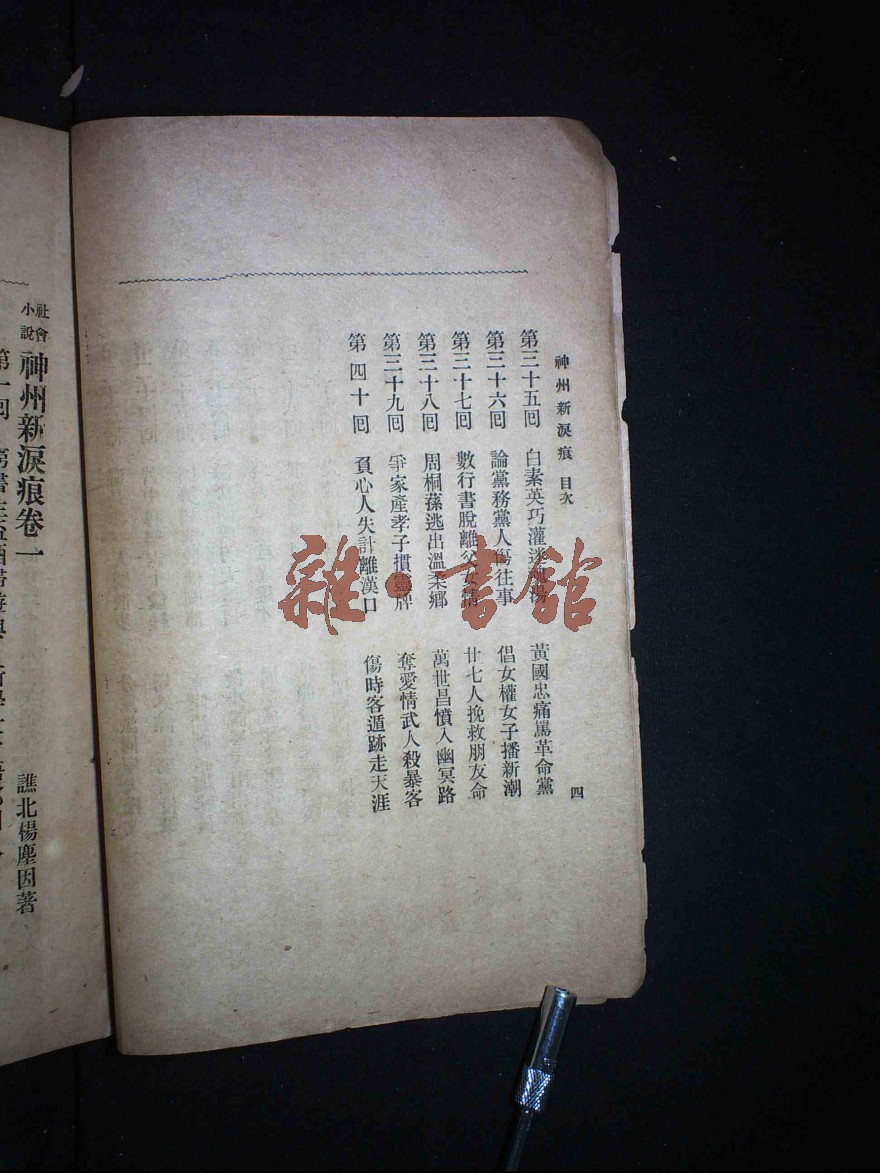 神州新淚痕 目次
四
第三十五囘 白素英巧灌迷魂湯 黃國忠痛罵革命黨
第三十六囘 論黨務黨人傷往事 倡女權女子播新潮
第三十七囘 數行書脫離父女情 廿七人挽救朋友命
第三十八囘 周桐蓀逃出溫柔鄉 萬世昌憤入幽冥路
第三十九囘 爭家產孝子摜靈牌 奪愛情武人殺暴客
第四十囘 負心人失計離漢口 傷時客遁跡走天涯
社會小說 神州新淚痕卷一
譙北楊塵因著
第一囘
雜·書館